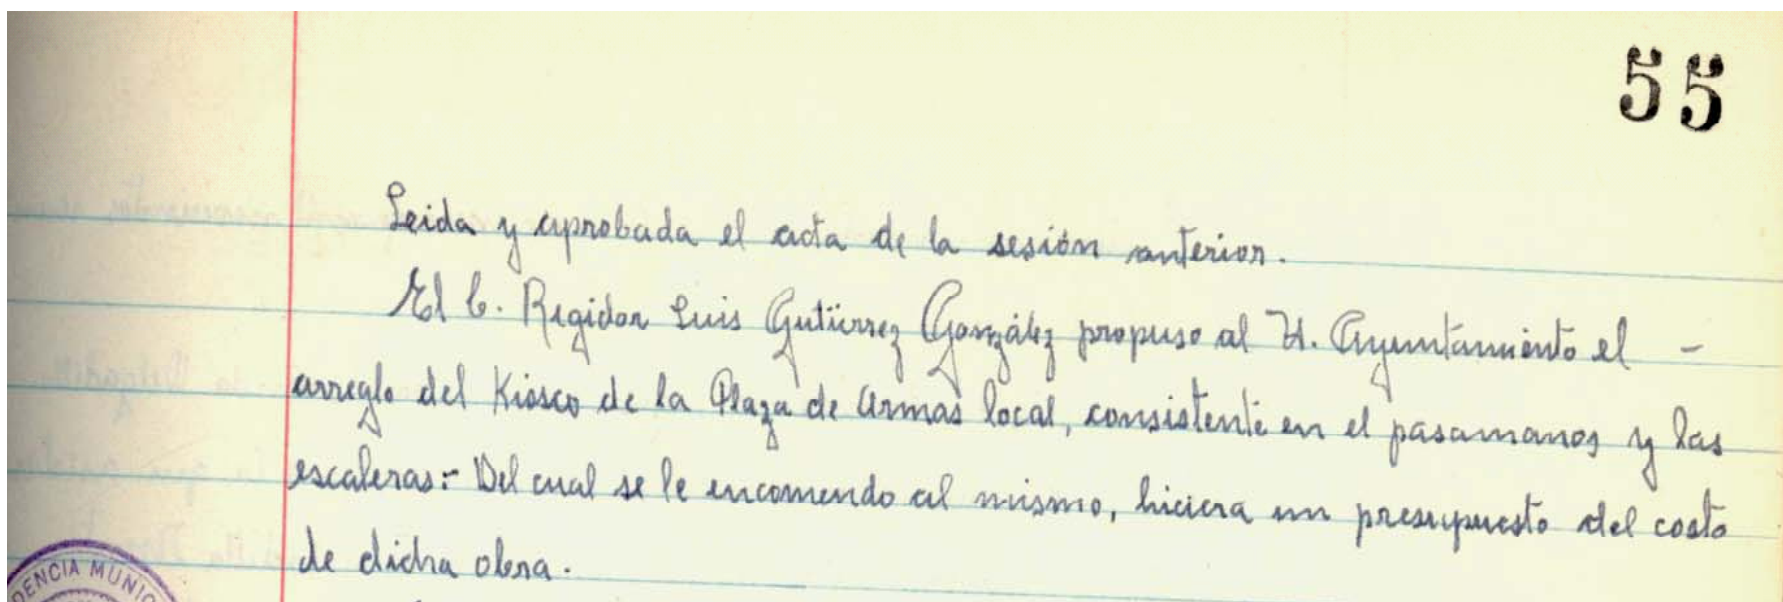 55
Leida y aprobada el acta de la sesión anterior.
El C. Regidor Luis Gutiérrez González propuso al H. Ayuntamiento el -
arreglo del Kiosco de la Plaza de Armas local, consistente en el pasamanos y las
escaleras:- Del cual se le encomendo al mismo, hiciera un presupuesto del costo
de dicha obra.
DENCIA MUNIC